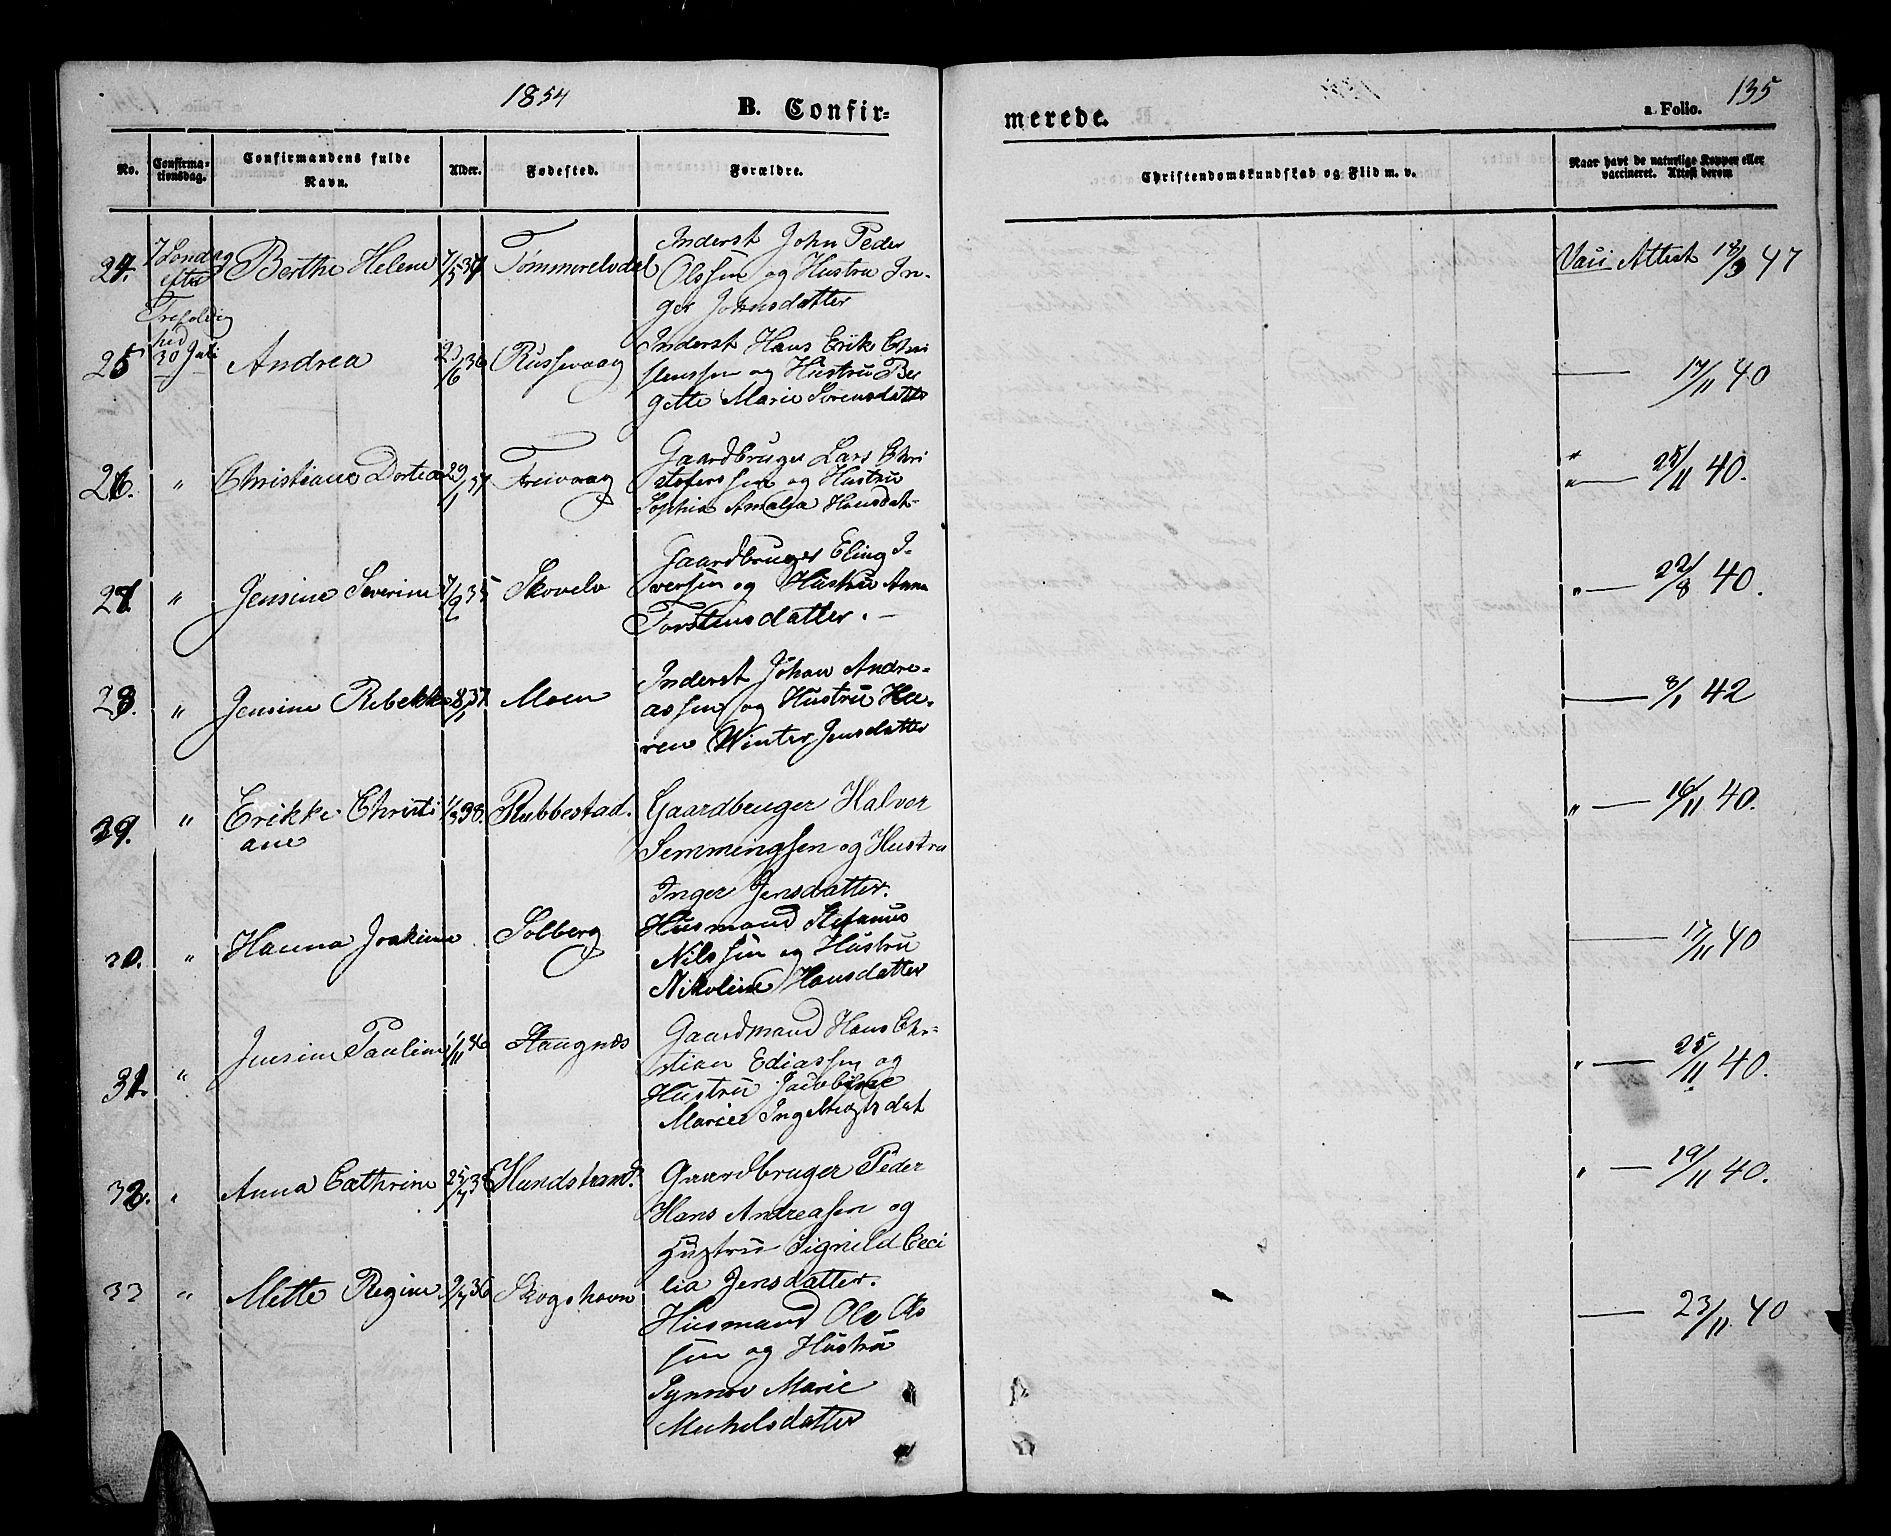 1854
B. Confir=
merede.
a. Folio. 135
No.
Confirma=
tionsdag.
Confirmandens fulde
Navn.
Alder.
Fødested.
Forældre.
Christendomskundskab og Flid m. v.
Naar havt de naturlige Kopper eller
vaccineret. Attest derom
24. 7 Søndag Berthe Helene 7/5 37 Tømmerelvdel Inderst John Peder
efter Olssen og Hustru In-
Trefoldig ger Johnsdatter
Vaci Attest 18/9 47
hed
30 Juli
25 Andrea 23/6 36 Russevaag Inderst Hans Erik Chri
stenssen og Hustru Ber
gette Marie Sørensdatter
— 17/11 40
26. " Christiane Dortea 29/1 37 Freivaag Gaardbruger Lars Chri
stofersen og Hustru
Sophia Amalia Hansdat-
" — 25/11 40.
27. " Jensine Severine 7/9 35 Skovelv Gaardbruger Eling I-
versen og Hustru Anna
Torstensdatter. —
" — 22/8 40.
28. " Jensine Rebekke 8/1 37 Moen Inderst Johan Andre-
assen og Hustru Ka-
ren Winter Jensdatter
— 8/1 42
29. " Erikke Christi 1/3 38. Rubbestad. Gaardbruger Halvor
ane Semmingsen og Hustru
Inger Jensdatter.
" — 16/11 40.
30. " Hanna Joakime Solberg Husmand Stefanus
Nilssen og Hustru
Nikoline Hansdatter
— 17/11 40
31. " Jensine Pauline 1/11 36 Haugnæs Gaardmand Hans Chr-
stian Ediassen og
Hustru Jacobine
Marie Ingebrigtsdat
" — 25/11 40.
32. " Anna Cathrine 25/7 38 Hundstrand. Gaardbruger Peder
Hans Andreasen og
Hustru Signild Ceci
lia Jensdatter.
" — 19/11 40.
33 " Mette Regine 2/7 36 Skogshavn
Husmand Ole Ols
sen og Hustru
Synnøv Marie
Michelsdatter
— 23/11 40